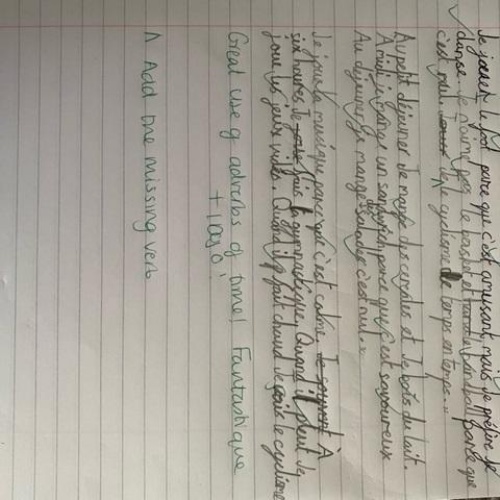 Je jouer le foot parce que c'est amusant, mais je préfère le
danse. Je n'aime pas le basket et parce que
c'est nul. le cyclisme de temps en temps..
Au petit déjeuner Je mange des cereales et Je bois du lait.
A midi je mange un sandwich parce que c'est savoureux
Au dejeuner je mange des salades c'est nul..
Je joue la musique parce que c'est calme Je souvent A
six heures Je fais la gymnastique. Quand il pleut Je
joue les jeux video. Quand il fait chaud Je fais le cyclisme
Great use of adverbs of time! Fantastique
Λ Add the missing verb